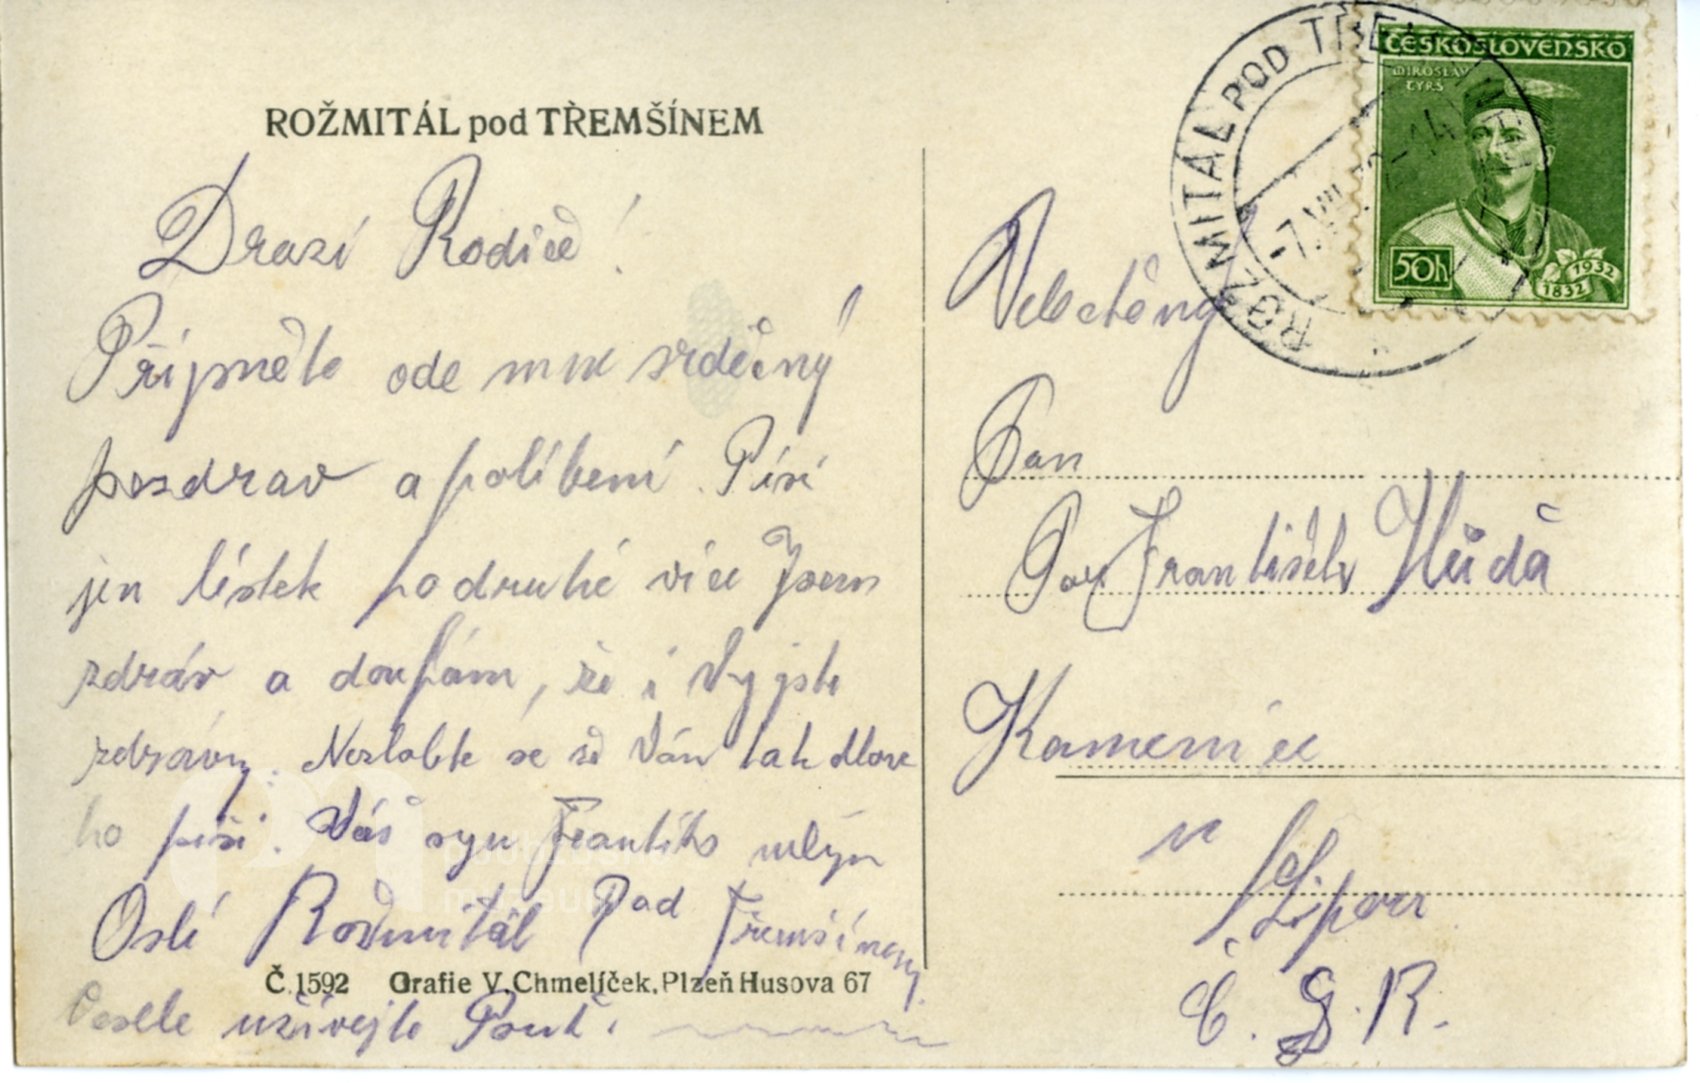 ROŽMITÁL pod TŘEMŠÍNEM
Drazí Rodiče!
Přijměte ode mne srdečný
pozdrav a políbení. Píši
jen lístek podruhé více Jsem
zdráv a doufám, že i Vy jste
zdrávy. Nezlobte se že Vám tak dlou
ho píši. Váš syn Frantík mlýn
Oslí Rožmitál Pod Třemšínem.
Č. 1592 Grafie V. Chmelíček, Plzeň Husova 67
Vesele užívejte Pouť.
ROŽMITÁL POD TŘEMŠÍNEM
-7.VIII.
ČESKOSLOVENSKO
MIROSLAV
TYRŠ
50h
1932
1832
Velectěný
Pan
Pan František Hůda
Kamenice
u Lipou
Č. S. R.